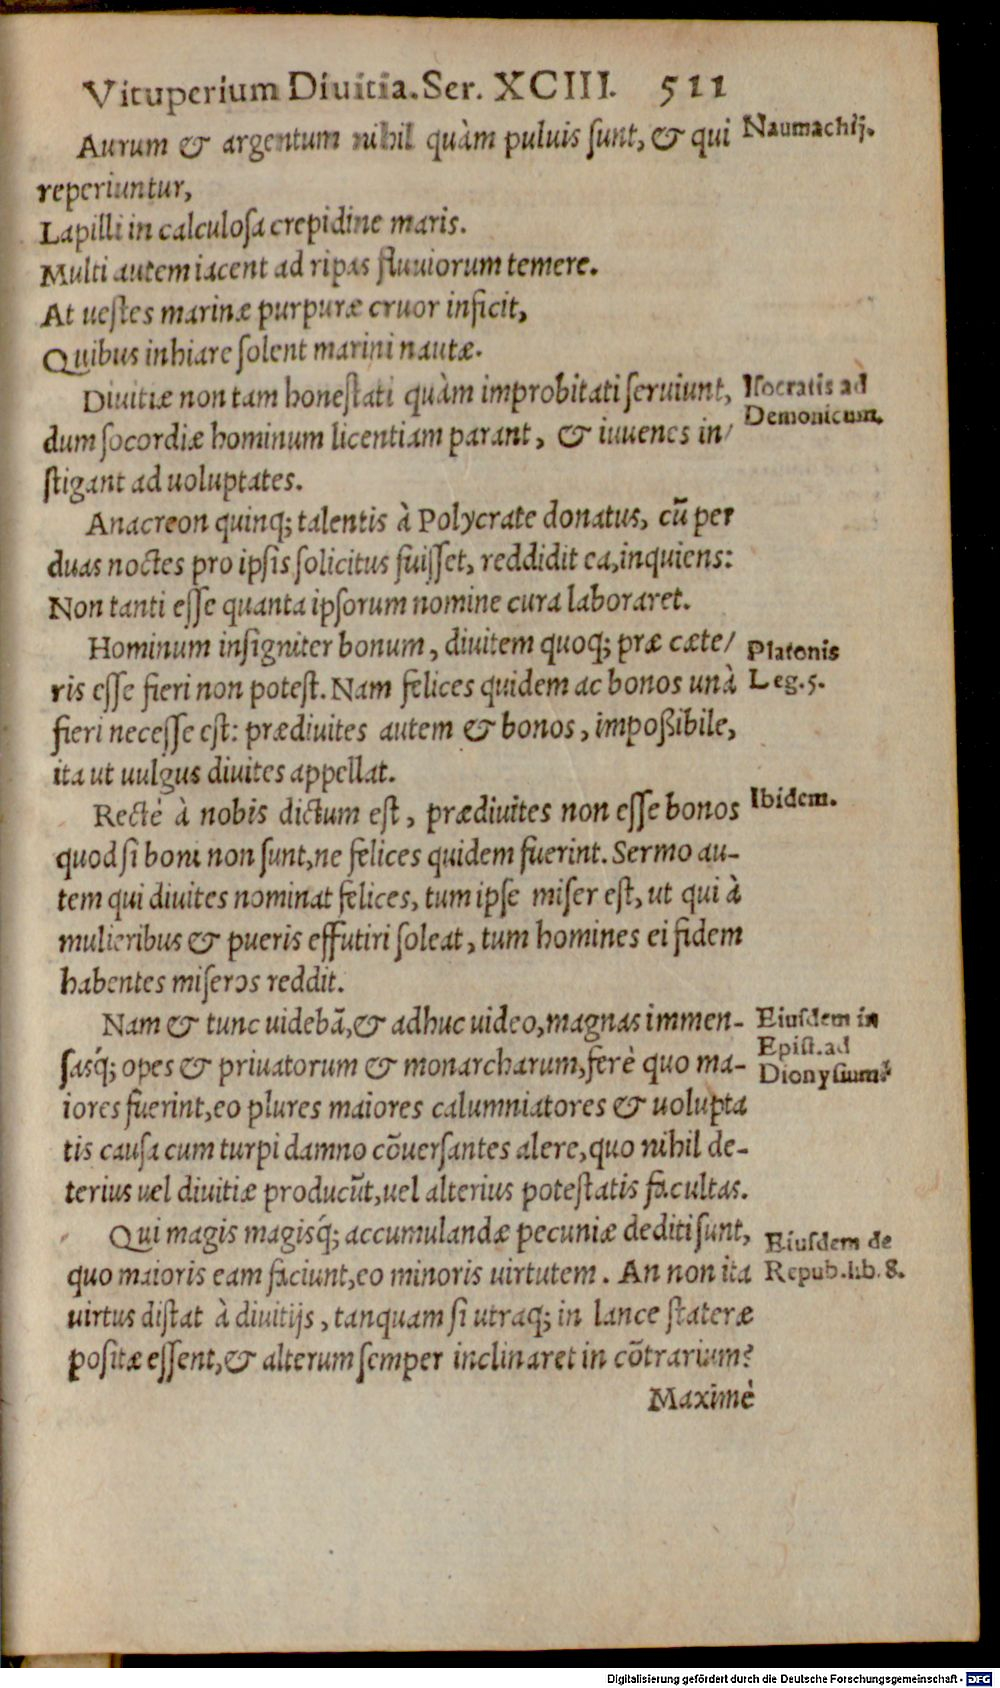 Vituperium Diuitia. Ser. XCIII. 511
Aurum & argentum nihil quàm puluis sunt, & qui
Naumachij.
reperiuntur,
Lapilli in calculosa crepidine maris.
Multi autem iacent ad ripas fluuiorum temere.
At uestes marinæ purpuræ cruor inficit,
Quibus inhiare solent marini nautæ.
Diuitiæ non tam honestati quàm improbitati seruiunt,
Isocratis ad
Demonicum.
dum socordiæ hominum licentiam parant, & iuuenes in/
stigant ad uoluptates.
Anacreon quinq; talentis à Polycrate donatus, cũ per
duas noctes pro ipsis solicitus fuisset, reddidit ea, inquiens:
Non tanti esse quanta ipsorum nomine cura laboraret.
Hominum insigniter bonum, diuitem quoq; præ cæte/
Platonis
Leg. 5.
ris esse fieri non potest. Nam felices quidem ac bonos unà
fieri necesse est: prædiuites autem & bonos, impoßibile,
ita ut uulgus diuites appellat.
Recté à nobis dictum est, prædiuites non esse bonos
Ibidem.
quod si boni non sunt, ne felices quidem fuerint. Sermo au-
tem qui diuites nominat felices, tum ipse miser est, ut qui à
mulieribus & pueris effutiri soleat, tum homines ei fidem
habentes miseros reddit.
Nam & tunc uidebã, & adhuc uideo, magnas immen-
Eiusdem in
Epist. ad
Dionysium.
sasq́; opes & priuatorum & monarcharum, ferè quo ma-
iores fuerint, eo plures maiores calumniatores & uolupta
tis causa cum turpi damno cõuersantes alere, quo nihil de-
terius uel diuitiæ producũt, uel alterius potestatis facultas.
Qui magis magisq́; accumulandæ pecuniæ dediti sunt,
Eiusdem de
Repub. lib. 8.
quo maioris eam faciunt, eo minoris uirtutem. An non ita
uirtus distat à diuitijs, tanquam si utraq; in lance stateræ
positæ essent, & alterum semper inclinaret in cõtrarium?
Maximè
Digitalisierung gefördert durch die Deutsche Forschungsgemeinschaft - DFG